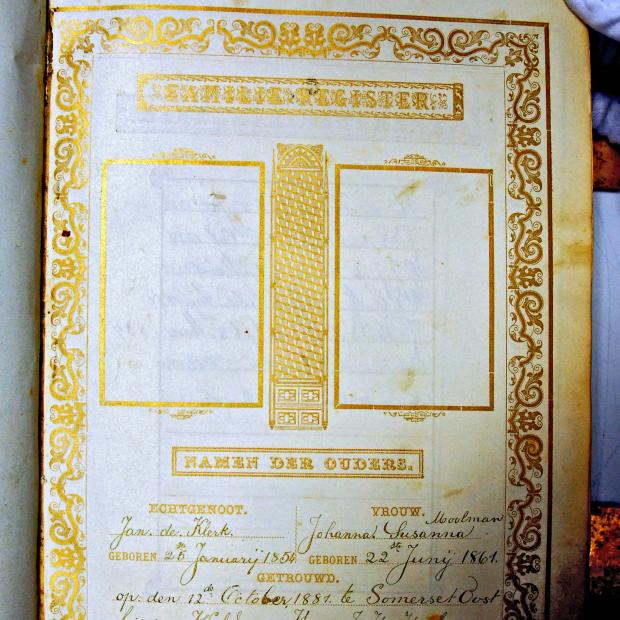 FAMILIE-REGISTER
NAMEN DER OUDERS.
ECHTGENOOT. VROUW.
Moolman
Jan. de. Klerk. Johanna. Susanna
GEBOREN Januarij 1854 GEBOREN 22 ste Junij 1861.
GETROUWD.
op den 12de October 1881. te Somerset Oost